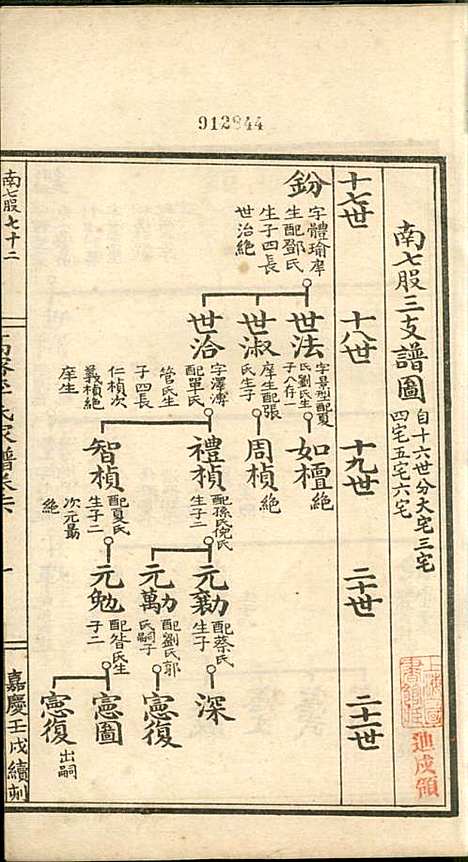 912844
南七股三支譜圖
自十六世分大宅三宅
四宅五宅六宅
十七世
十八世
十九世
二十世
二十一世
鈖
字體瑜庠
生配鄧氏
生子四長
世治絶
世法
字景型配夏
氏劉氏生
子八存一
世淑
庠生配張
氏生子
世治
字澤溥
配單氏
管氏生
子四長
仁楨次
義楨絶
庠生
如檀
絶
周楨
絶
禮楨
配孫氏倪氏
生子二
智楨
配夏氏
生子二
次元勗
絶
元勷
配蔡氏
生子
元勱
配劉氏郭
氏嗣子
元勉
配昝氏生
子二
深
憲復
憲圖
憲復
出嗣
南七股七十二
氏家譜卷六
嘉慶壬戌續刻